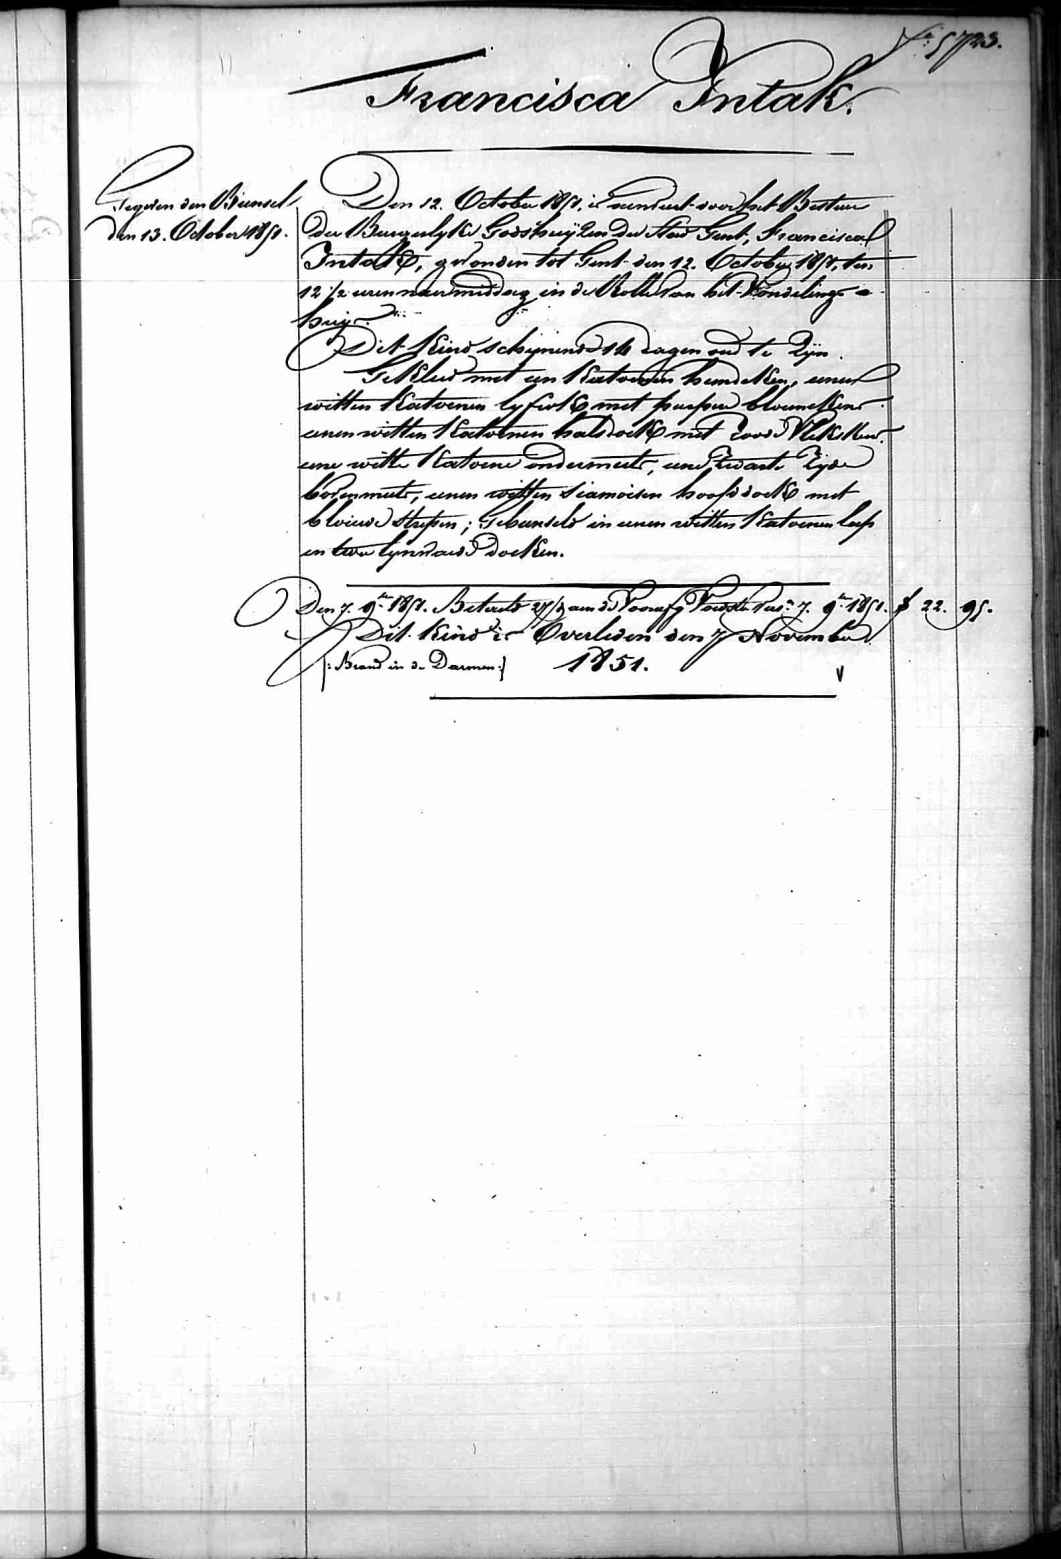 fo 5723.
Francisca Intak.
Gegeven den Bunsel
den 13. October 1851.
Den 12. October 1851, is aenveert door het Bestuer
der Burgerlyke Godshuijzen der Stad Gent, Francisca
Intak, gevonden tot Gent den 12. October 1851, ten
12 1/2 uren naermiddag in de Rolle van het Vondelings-
huijs.
Dit Kind schijnende 14 dagen oud te Zijn.
Gekleed met een Katoenen hemdeken, eenen
witten Katoenen lyfrok met purper bloemekens
eenen witten Katoenen halsdoek met roode Vlekskens
eene witte Katoene ondermuts, eene Zwarte Zyde
bovenmuts, eenen witten siamoisen hoofddoek met
blauwe strepen; Gebunseld in eenen witten Katoenen lap
en twee lynwaed doeken.
Den 7. 9bre 1851. Betaeld aen de 7. 9bre 1851. f 22. 95.
Dit Kind is Overleden den 7 November
[: Brand in de Darmen :] 1851.